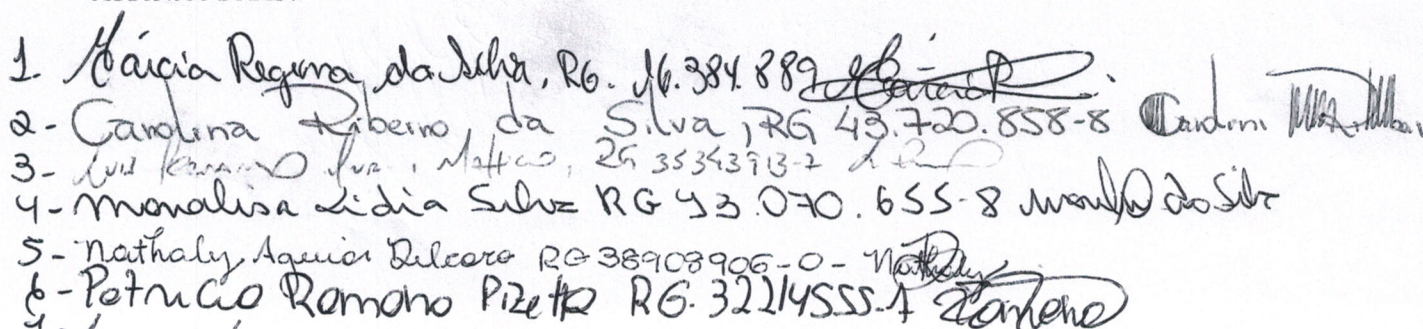 1. Márcia Regina da Silva, RG. 16.384.889 Márcia R
2- Carolina Ribeiro da Silva, RG 43.720.858-8 Carolina
3- Luis RG 35343913-7
4- Monalisa Lidia Silva RG 43.070.655-8 da Silva
5- Nathaly Aguiar Delcaro RG 38908906-0- Nathaly
6- Patrucio Romano Pizetta RG. 32214555-1 Romano